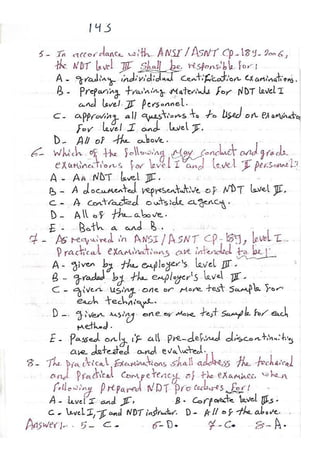 143
5- In accordance with ANSI/ASNT CP-189-2006,
the NDT level III shall be responsible for:
A- grading individidual certification examinations.
B- Preparing training materials for NDT level I
and level II personnel.
C- approving all questions to to Used on examination
for level I and level II.
D- All of the above.
6- Which of the following May conduct and grade
examinations for level I and level II personnel?
A- An NDT level III.
B- A documented representative of NDT level III.
C- A contracted outside agency.
D- All of the above.
E- Both a and B.
7- As required in ANSI/ASNT CP-189, level I
Practical examinations are intended to be:
A- given by the employer's level III.
B- graded by the employer's level III.
C- given using one or more test sample for
each technique.
D- given using one or more test sample for each
method.
E- Passed only if all Pre-defined discontinuities
are detected and evaluated.
8- The practical Examinations shall address the techniral
and Practical competency of the examinee when
following prepared NDT procedures for:
A- level I and II. B- Corporate level IIIs.
C- level I, II and NDT instructor. D- All of the above.
Answer:- 5- C- 6-D- 7-C- 8-A-